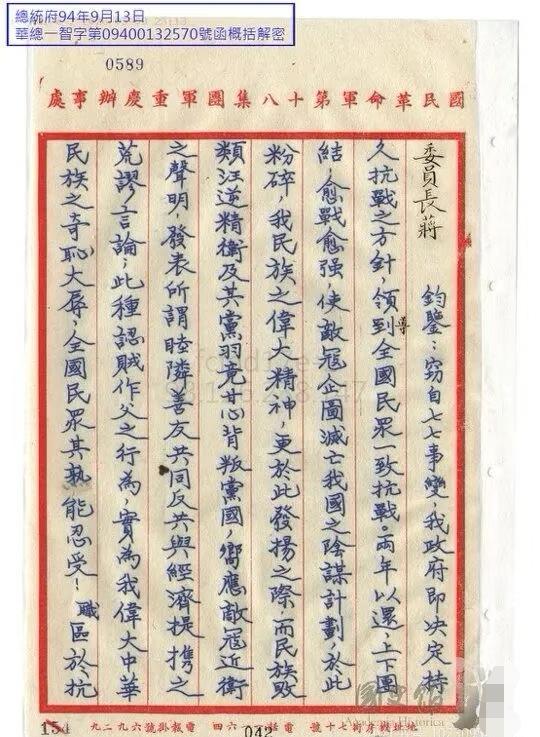 總統府94年9月13日
華總一智字第09400132570號函概括解密
0589
國民革命軍第十八集團軍重慶辦事處
委員長蔣 鈞鑒：竊自七七事變，我政府即決定持
久抗戰之方針，領導到全國民眾一致抗戰。兩年以還，上下團
結，愈戰愈强，使敵寇企圖滅亡我國之陰謀計劃，於此
粉碎，我民族之偉大精神，更於此發揚之際，而民族敗
類汪逆精衛及其黨羽竟甘心背叛黨國，嚮應敵寇近衛
之聲明，發表所謂睦隣善友共同反共與經濟提携之
荒謬言論，此種認賊作父之行為，實為我偉大中華
民族之奇恥大辱，全國民眾其孰能忍受！職區於抗
街七十號 電話一一六四 電報掛號六九二九
154
042
國史館
Academia Historica